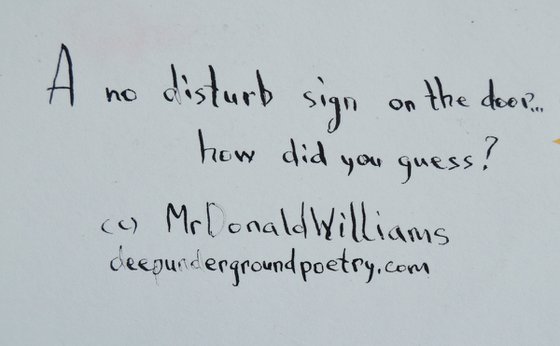 A no disturb sign on the door...
how did you guess?
(c) MrDonaldWilliams
deepundergroundpoetry.com